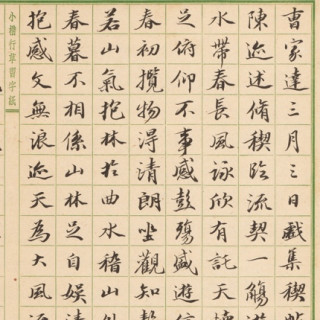 曹家達三月三日戲集禊帖
陳迹述脩禊臨流契一觴
水帶春長風詠欣有託天
足俯仰不事感彭殤盛遊
春初攬物得清朗坐觀知
若山氣抱林於曲水稽山
春暮不相係山林足自娛
抱感文無浪迹天為大風
小楷行草習字紙